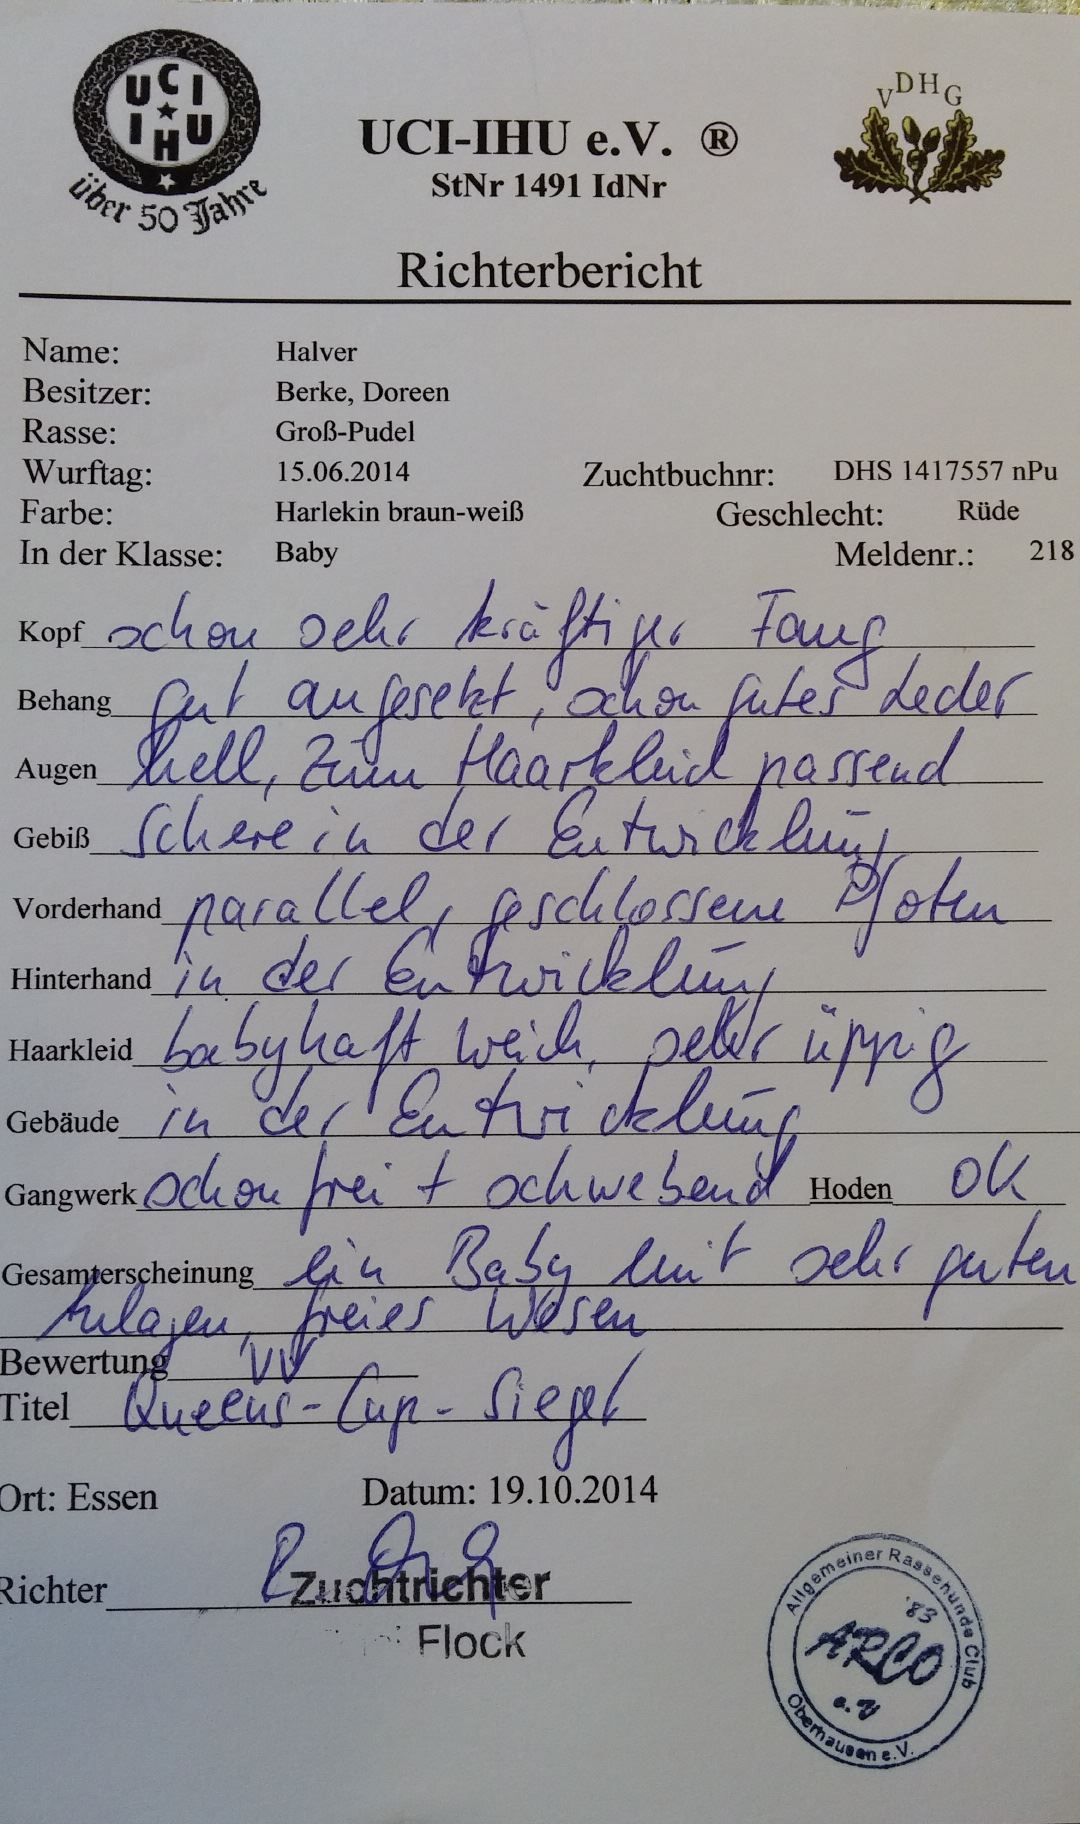 UCI
IHU
über 50 Jahre
VDHG
UCI-IHU e.V. ®
StNr 1491 IdNr
Richterbericht
Name: Halver
Besitzer: Berke, Doreen
Rasse: Groß-Pudel
Wurftag: 15.06.2014 Zuchtbuchnr: DHS 1417557 nPu
Farbe: Harlekin braun-weiß Geschlecht: Rüde
In der Klasse: Baby Meldenr.: 218
Kopf schon sehr kräftiger Fang
Behang gut angesetzt, schon gutes Leder
Augen hell, zum Haarkleid passend
Gebiß Schere in der Entwicklung
Vorderhand parallel, geschlossene Pfoten
Hinterhand in der Entwicklung
Haarkleid babyhaft weich, sehr üppig
Gebäude in der Entwicklung
Gangwerk schon frei + schwebend Hoden OK
Gesamterscheinung ein Baby mit sehr guten
Anlagen, freies Wesen
Bewertung VV
Titel Queens-Cup-Sieger
Ort: Essen Datum: 19.10.2014
Richter Zuchtrichter
Flock
Allgemeiner Rassehunde Club
'83
ARCO
e.V
Oberhausen e.V.